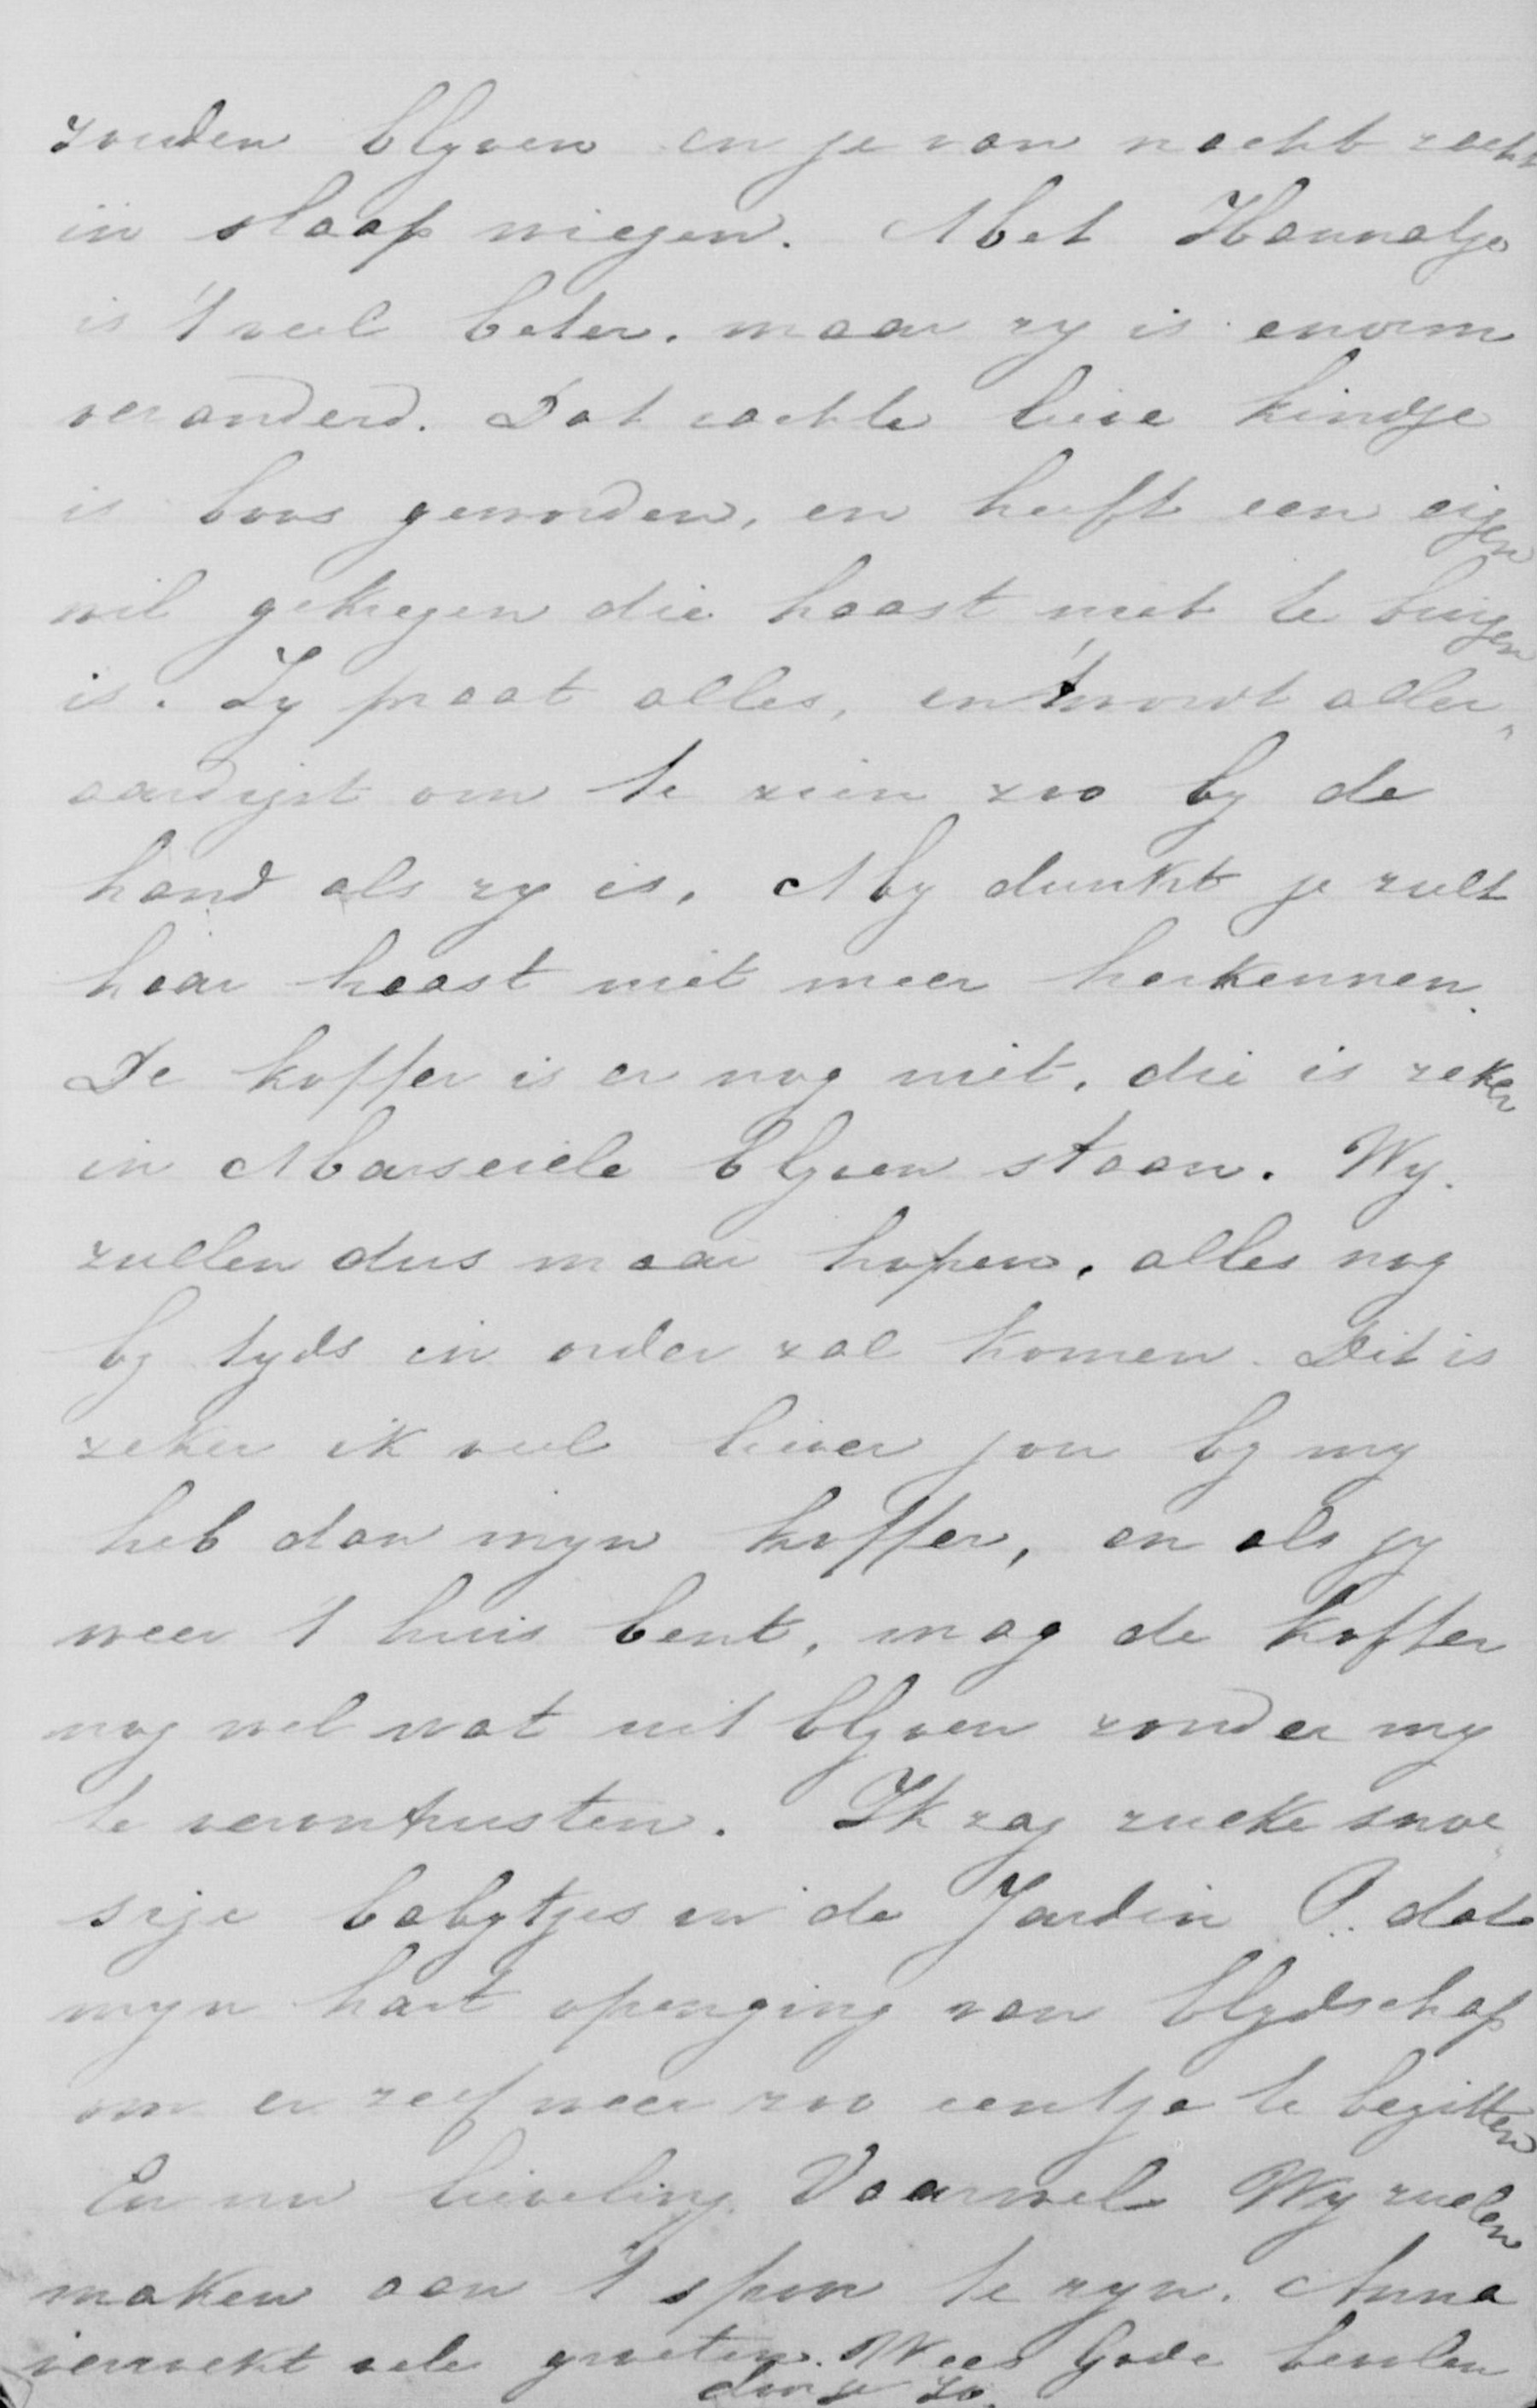 zouden blyven en je van nacht zacht
in slaap wiegen. Met Hannatje
is 't veel beter, maar zy is enorm
veranderd. Dat zachte lieve kindje
is boos geworden, en heeft een eigen
wil gekregen die haast niet te buigen
is. Zy praat alles, en 't wordt aller„
aardigst om te zien zoo by de
hand als zy is. My dunkt je zult
haar haast niet meer herkennen.
De koffer is er nog niet, die is zeker
in Marseiele blyven staan. Wy
zullen dus maar hopen, alles nog
by tyds in order zal komen. Dit is
zeker ik veel liever jou by my
heb dan myn koffer, en als jy
weer t huis bent, mag de koffer
nog wel wat uit blyven zonder my
te verontrusten. Ik zag zulke snoe„
sige babytjes in de Jardin P. dat
myn hart openging van blydschap
om er zelf weer zoo eentje te bezitten
En nu lieveling Vaarwel Wy zullen
maken aan 't spoor te zyn. Anna
verzoekt vele groeten. Wees Gode bevolen
door je